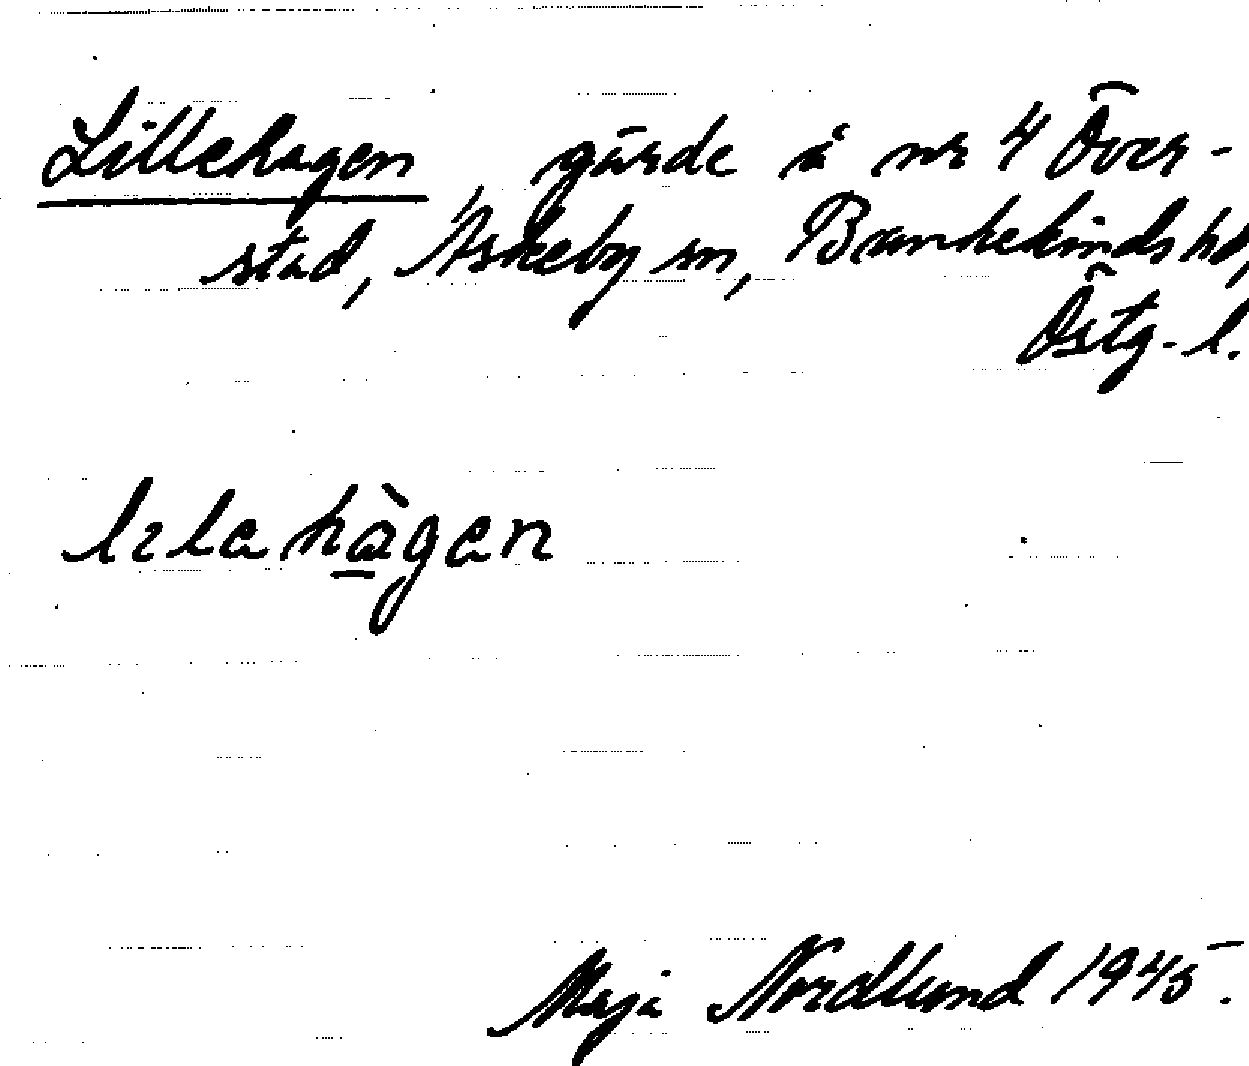 Lillehagen gärde å nr 4 Över-
stad, Askeby sn, Bankekinds hd,
Östg.l.
lɩlahàgen
Maja Nordlund 1945.